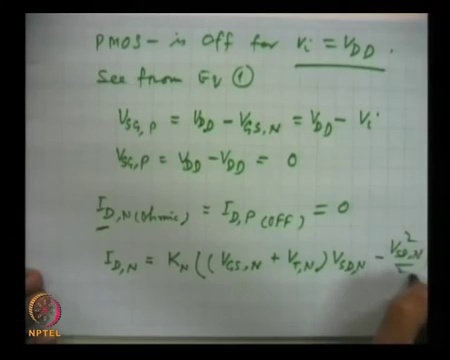 PMOS - is off for Vi = VDD.
See from Eq ①
VSG,P = VDD - VGS,N = VDD - Vi
VSG,P = VDD - VDD = 0
ID,N(ohmic) = ID,P(OFF) = 0
ID,N = KN((VGS,N + VT,N) VSD,N - VSD,N²
NPTEL